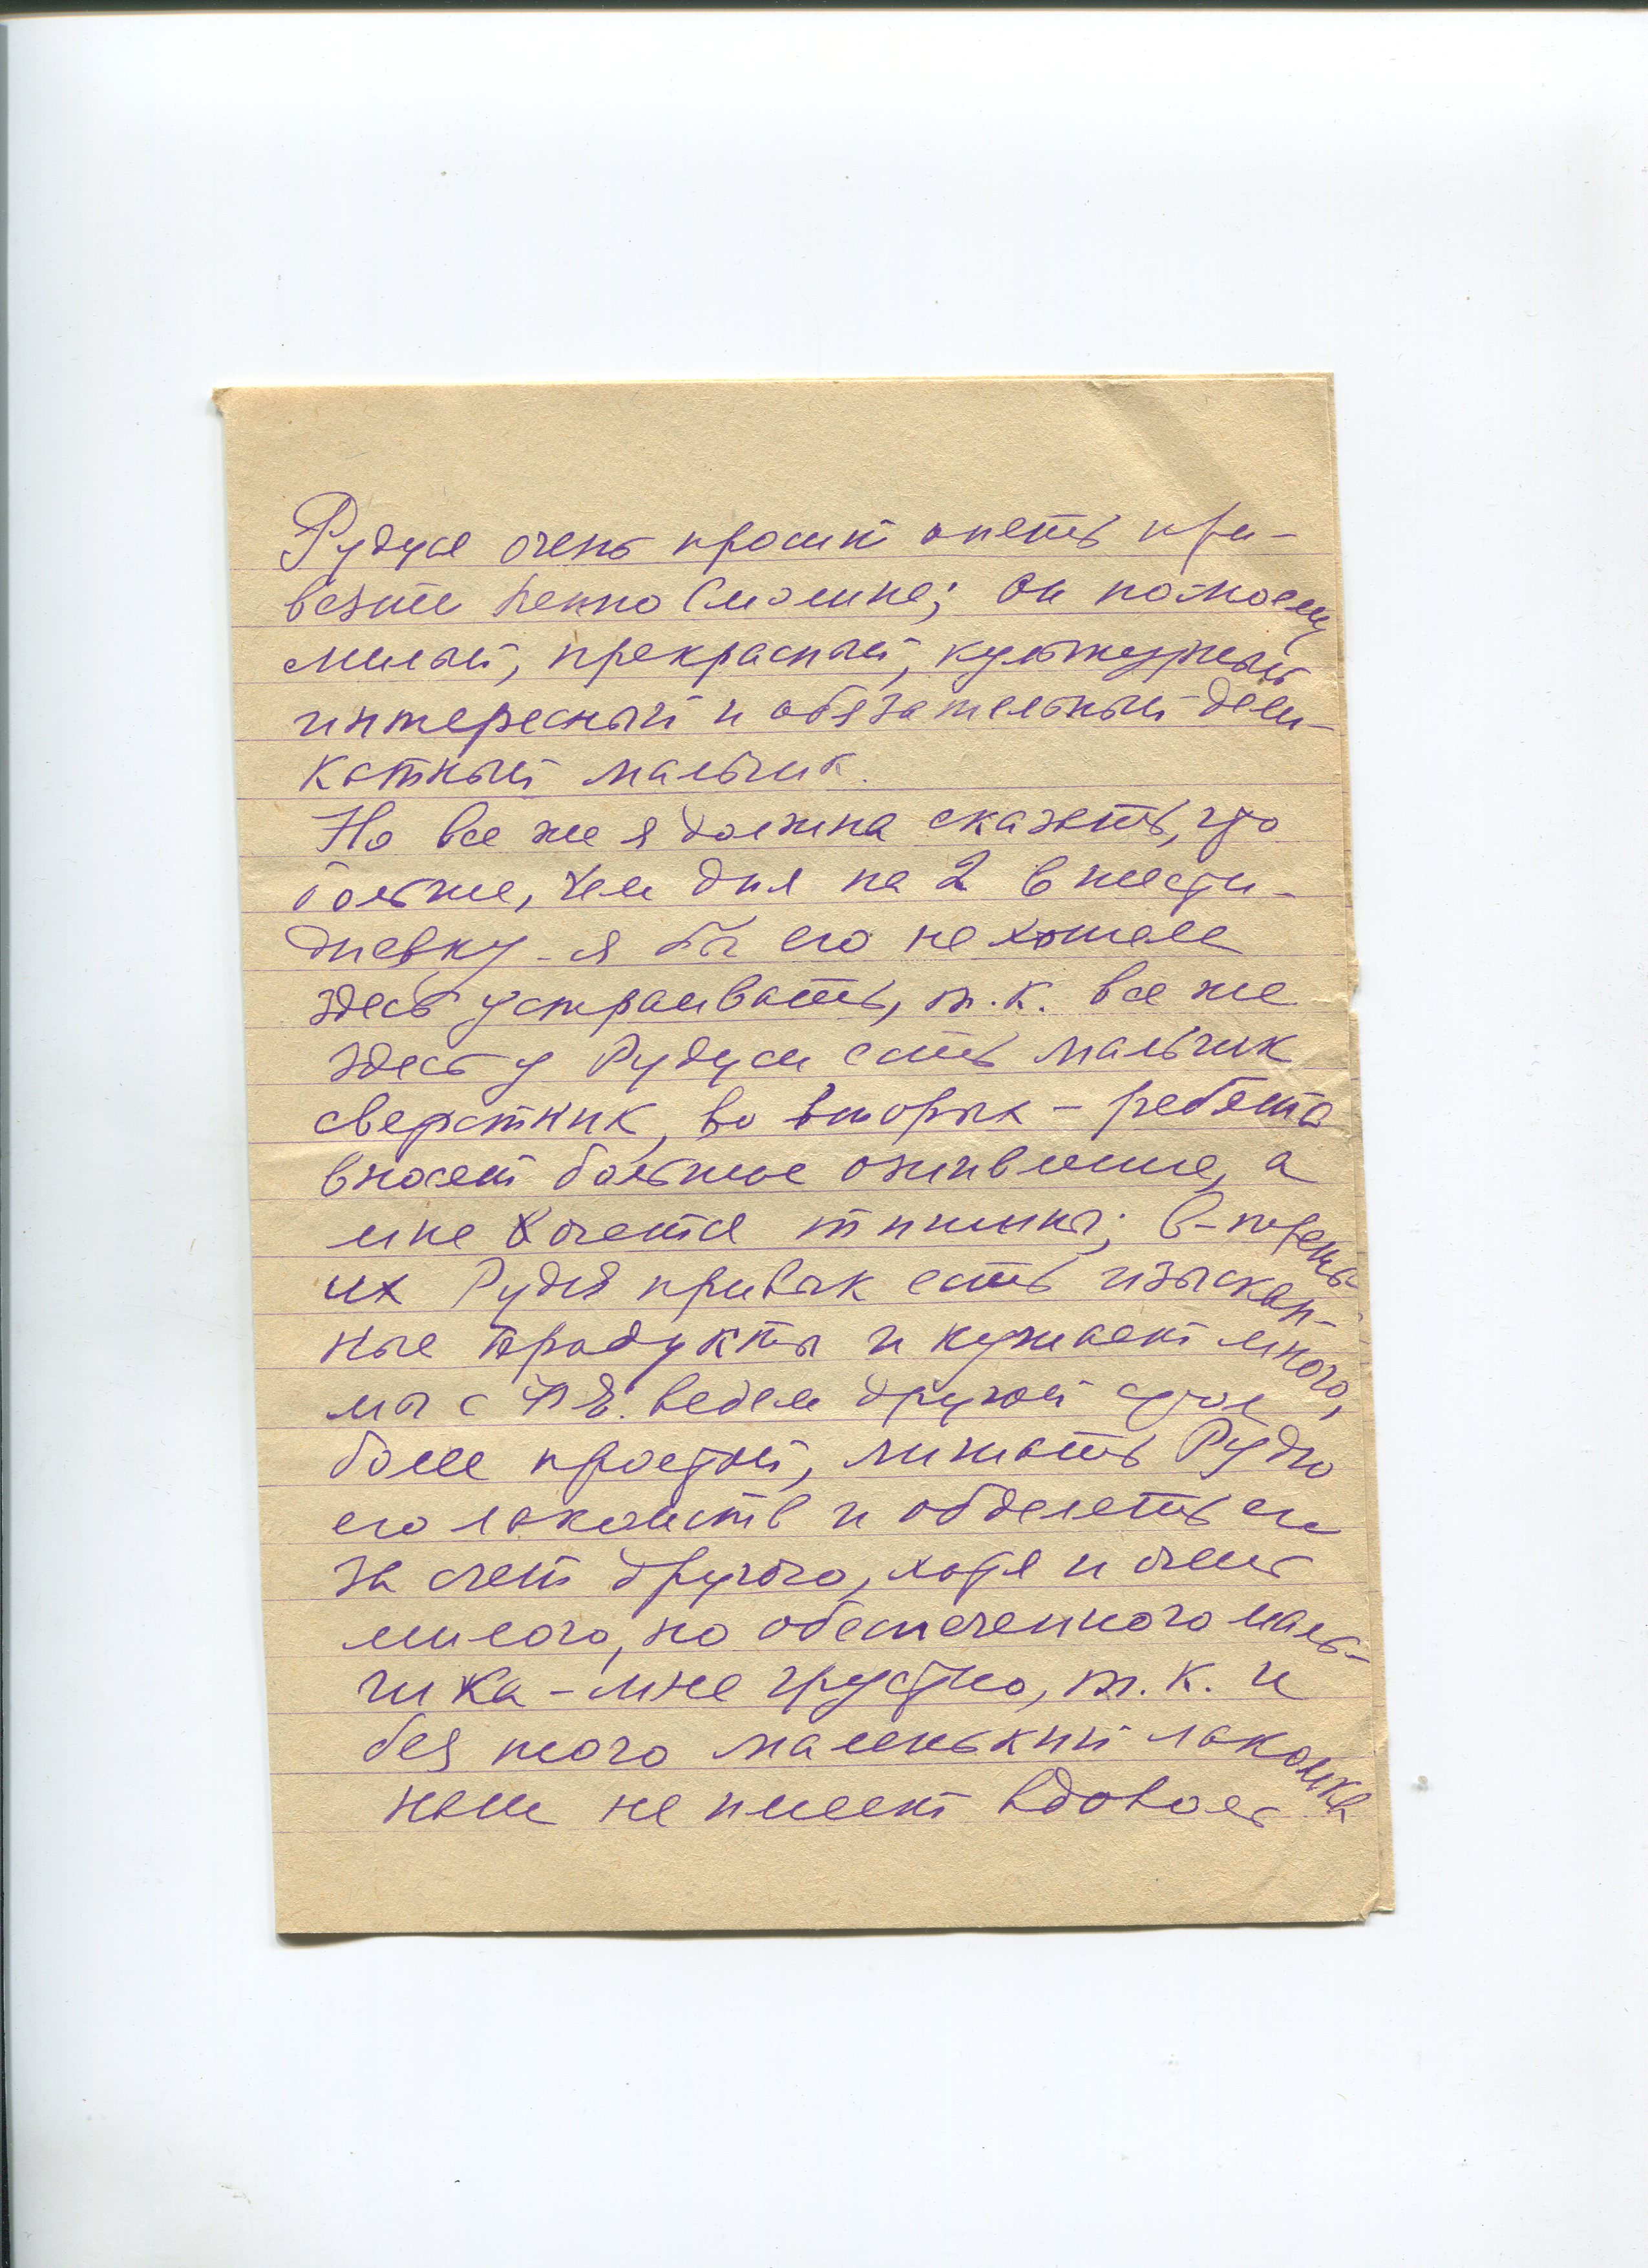 Рудуся очень просит опять при-
везти Смолина; он по-моему
милый, прекрасный, культурный
интересный и обязательный дели-
катный мальчик.
Но все же я должна сказать, что
больше, чем дня на 2 в шести-
дневку - я бы его не хотела
здесь устраивать, т.к. все же
здесь у Рудуси есть мальчик
сверстник, во вторых - ребята
вносят большое оживление, а
мне хочется тишины; в-третьи
их Рудя привык есть изыскан-
ные продукты и кушает много,
мы с Ф.Е. ведем другой стол
более простой, лишать Рудю
его лакомств и обделять его
за счет другого, хотя и очень
милого, но обеспеченного маль-
чика - мне грустно, т.к. и
без того маленький лакомка
наш не имеет вдоволь